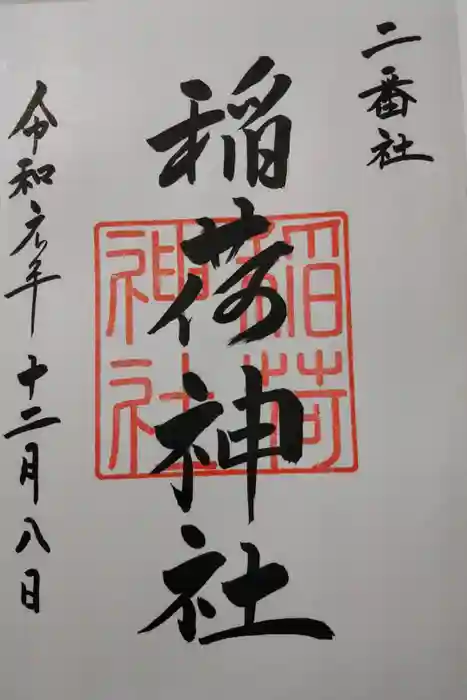 二番社
稲荷神社
稲荷
神社
令和元年十二月八日